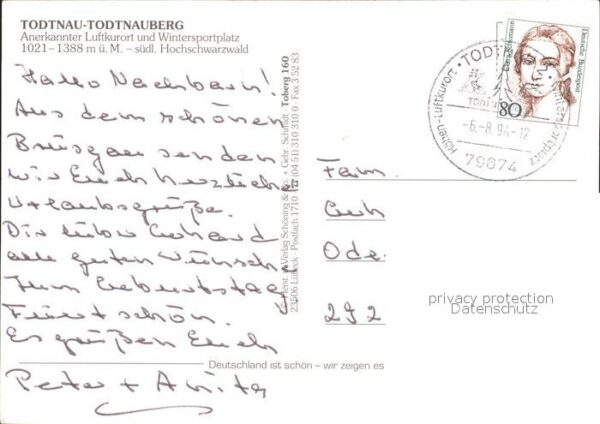 TODTNAU-TODTNAUBERG
Anerkannter Luftkurort und Wintersportplatz
1021–1388 m ü. M. – südl. Hochschwarzwald
Hallo Nachbarn!
Aus dem schönen
Breisgau senden
wir Euch herzliche
Urlaubsgrüße.
Dir lieber Gerhard
alle guten Wünsche
zum Geburtstag
Feiert schön.
Es grüßen Euch
Peter + Anita
Verlag Schöning & Co. + Gebr. Schmidt · Toberg 160
23506 Lübeck · Postfach 1710 (04 51) 310 310 0 · Fax 3 52 83
Deutschland ist schön – wir zeigen es
Deutsche Bundespost
80
Höhen-Luftkurort · TODT
-6.-8.94-12
79674
Wintersportplatz
Fam.
Ode
292
privacy protection
Datenschutz